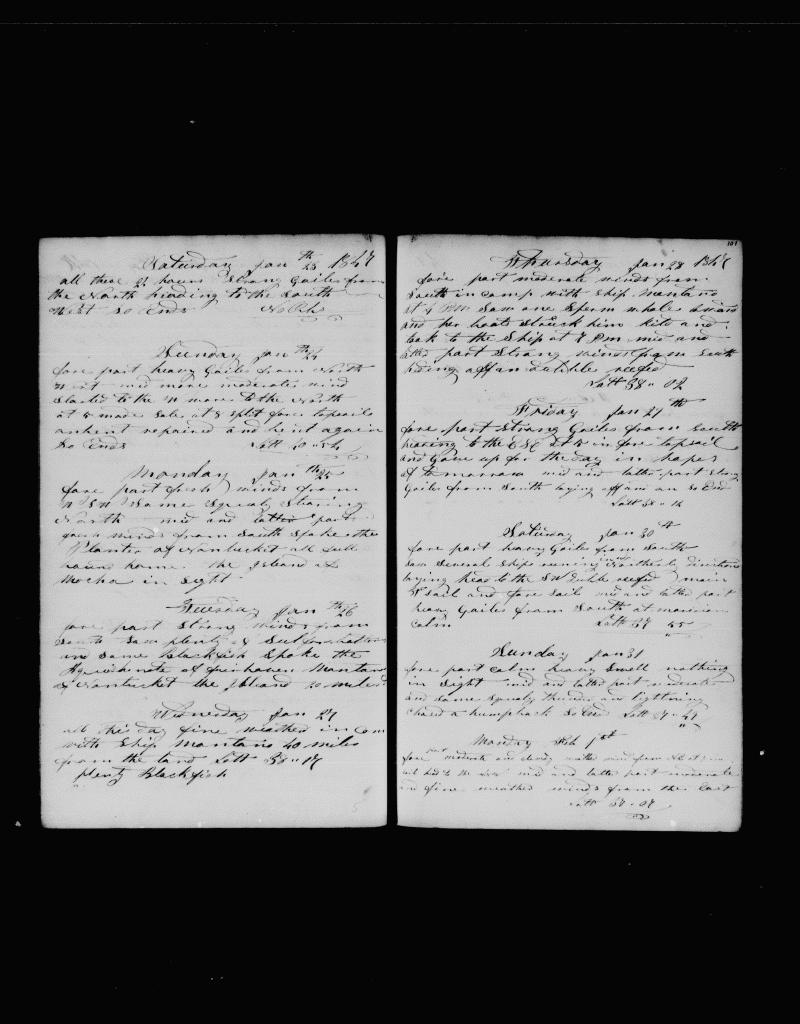 Saturday Jan 23th 1847
all these 24 hours Strong Gailes from
the North heading to the South
West So Ends No Obs
Sunday Jan th24
fore part heavy Gailes from North
West mid more moderate wind
to the North
at 8 made Sale at 8 split fore topsail
unbent repaired and bent again
So Ends Latt
Monday Jan th25
fore part fresh winds from
Some Squaly
North mid and latter part
winds from South Spoke the
Planter of Nantucket all full
bound home the Island of
Mocha in Sight
Tuesday Jan th26
fore part Strong winds from
South Saw plenty of Sulfur bottoms
and Some Blackfish Spoke the
of fairhaven Montano
of Nantucket the Island 20 miles
Wednesday Jan 27
all this day fine weather in Com
with Ship Montano 40 miles
from the land Latt 38"17
plenty Blackfish
101
Thursday Jan 28 1847
fore part moderate winds from
South in comp with Ship Montano
at 4 PM Saw one Sperm whale
and her boats Struck him kild and
took to the Ship at 8 Pm mid and
latter part Strong winds from South
Latt 38"02
Friday Jan 29th
fore part Strong Gailes from South
heading to the ESE at 5 in fore topsail
and Gave up for the day in hopes
of tomorrow mid and latter part Strong
Gailes from South laying So End
Latt 38"12
Saturday Jan 30th
fore part heavy Gailes from South
Saw Several Ships runing in Northerly directions
laying head to the SW Duble reefed main
T Sail and fore Sail mid and latter part
heavy Gailes from South at
Calm Latt 37 55
Sunday Jan 31
fore part calm heavy Swell nothing
in Sight mid and latter part moderate
and Some Squaly thunder and lightning
Chased a humpback So End Latt 37"47
Monday Feb 1st
fore part moderate and cloudy weather wind from
mid and latter part moderate
and fine weather winds from the East
Latt 37"07